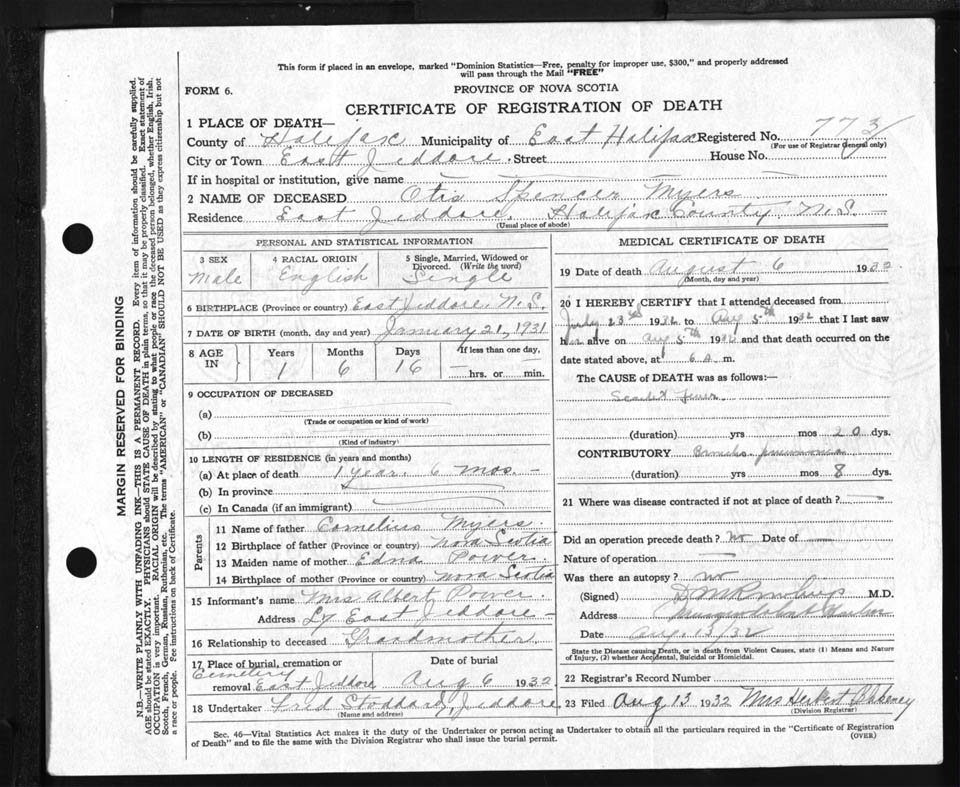 This form if placed in an envelope, marked "Dominion Statistics—Free, penalty for improper use, $300," and properly addressed
will pass through the Mail "FREE"
FORM 6.
PROVINCE OF NOVA SCOTIA
CERTIFICATE OF REGISTRATION OF DEATH
1 PLACE OF DEATH—
County of Halifax Municipality of East Halifax Registered No. 773
(For use of Registrar General only)
City or Town East Jeddore Street House No.
If in hospital or institution, give name —
2 NAME OF DECEASED Otis Spencer Myers
Residence East Jeddore, Halifax County N.S.
(Usual place of abode)
PERSONAL AND STATISTICAL INFORMATION
3 SEX 4 RACIAL ORIGIN 5 Single, Married, Widowed or
Divorced. (Write the word)
Male English Single
6 BIRTHPLACE (Province or country) East Jeddore, N.S.
7 DATE OF BIRTH (month, day and year) January 21, 1931
8 AGE IN Years Months Days If less than one day,
1 6 16 — hrs. or — min.
9 OCCUPATION OF DECEASED
(a)
(Trade or occupation or kind of work)
(b)
(Kind of industry)
10 LENGTH OF RESIDENCE (in years and months)
(a) At place of death 1 year 6 mos. —
(b) In province
(c) In Canada (if an immigrant)
Parents
11 Name of father Cornelius Myers.
12 Birthplace of father (Province or country) Nova Scotia
13 Maiden name of mother Edna Power.
14 Birthplace of mother (Province or country) Nova Scotia
15 Informant's name Mrs Albert Power.
Address East Jeddore —
16 Relationship to deceased Grandmother
17 Place of burial, cremation or Date of burial
Cemetery
removal East Jeddore Aug 6 1932.
18 Undertaker Fred Stoddard, Jeddore
(Name and address)
MEDICAL CERTIFICATE OF DEATH
19 Date of death August 6 1932
(Month, day and year)
20 I HEREBY CERTIFY that I attended deceased from
July 23rd 1932 to Aug 5th 1932 that I last saw
him alive on Aug 5th 1932 and that death occurred on the
date stated above, at 6 a. m.
The CAUSE of DEATH was as follows:—
Scarlet fever
(duration) yrs mos 20 dys.
CONTRIBUTORY Broncho pneumonia
(duration) yrs mos 8 dys.
21 Where was disease contracted if not at place of death? —
Did an operation precede death? no Date of —
Nature of operation —
Was there an autopsy? no
(Signed) M.D.
Address Musquodoboit Harbor
Date Aug. 13/32
State the Disease causing Death, or in death from Violent Causes, state (1) Means and Nature
of Injury, (2) whether Accidental, Suicidal or Homicidal.
22 Registrar's Record Number
23 Filed Aug 13 1932 Mrs Herbert Blakeney
(Division Registrar)
Sec. 46—Vital Statistics Act makes it the duty of the Undertaker or person acting as Undertaker to obtain all the particulars required in the "Certificate of Registration
of Death" and to file the same with the Division Registrar who shall issue the burial permit. (OVER)
MARGIN RESERVED FOR BINDING
N.B.—WRITE PLAINLY WITH UNFADING INK—THIS IS A PERMANENT RECORD. Every item of information should be carefully supplied.
AGE should be stated EXACTLY. PHYSICIANS should STATE CAUSE OF DEATH in plain terms, so that it may be properly classified. Exact statement of
OCCUPATION is very important. RACIAL ORIGIN will be described by stating to what people or race the deceased person belonged, whether English, Irish,
Scotch, French, German, Russian, Ruthenian, etc. The terms "AMERICAN" or "CANADIAN" SHOULD NOT BE USED as they express citizenship but not
a race or people. Fee instructions on back of Certificate.